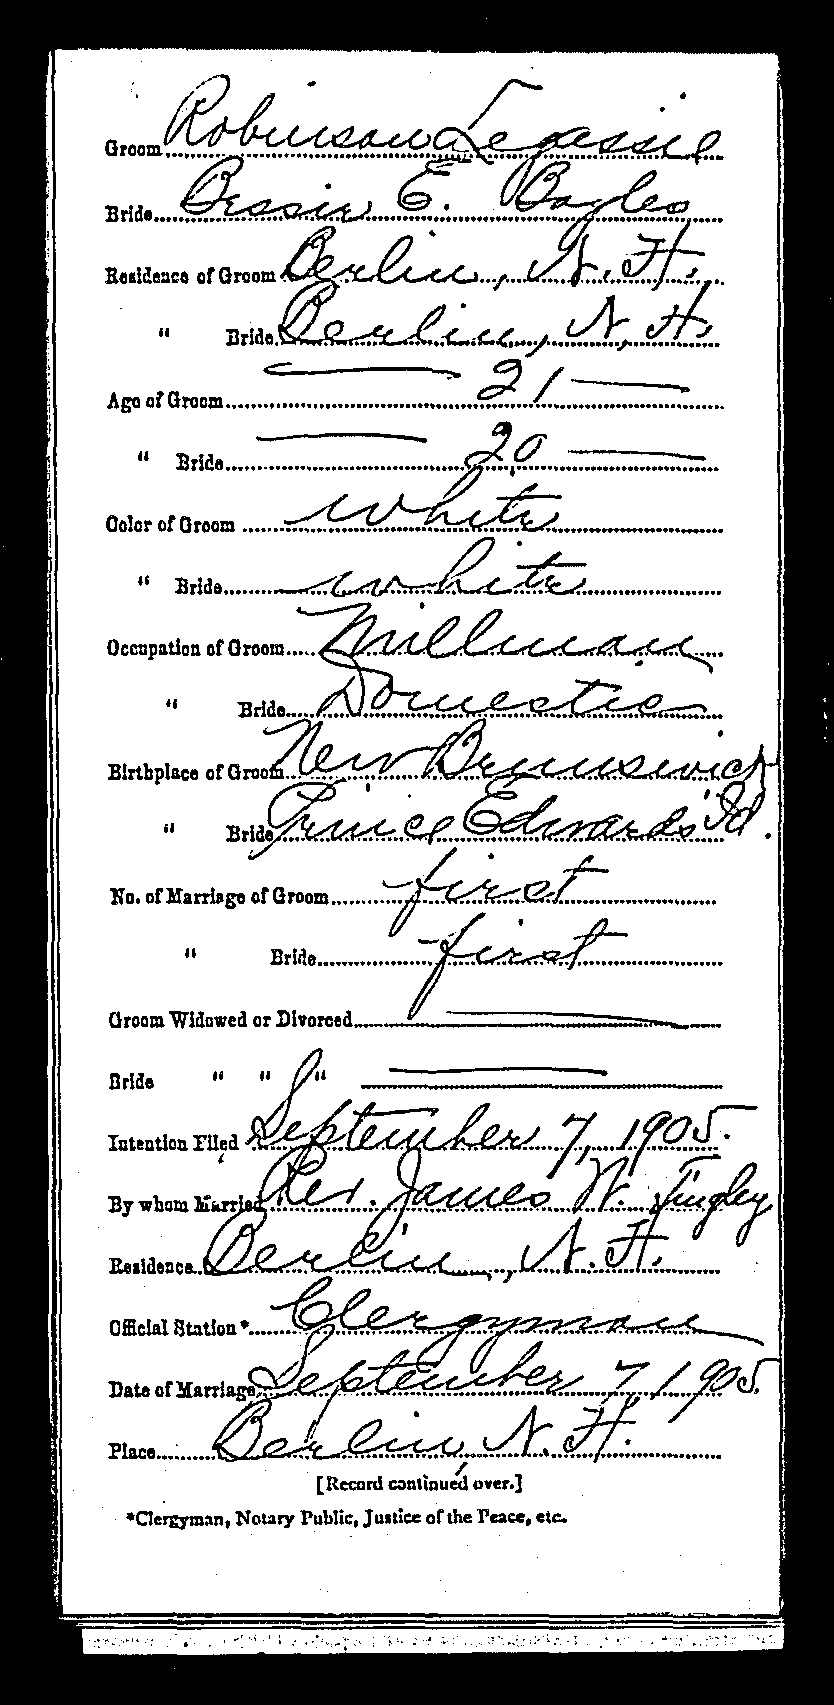 Groom Robinson Legassie
Bride Bessie E. Bayles
Residence of Groom Berlin, N.H.
" Bride Berlin, N.H.
Age of Groom 21
" Bride 20
Color of Groom white
" Bride white
Occupation of Groom Millman
" Bride Domestic
Birthplace of Groom New Brunswick
" Bride Prince Edwards Id.
No. of Marriage of Groom first
" Bride first
Groom Widowed or Divorced
Bride " " "
Intention Filed September 7, 1905.
By whom Married Rev. James W. Tingley
Residence Berlin, N.H.
Official Station* Clergyman
Date of Marriage September 7, 1905.
Place Berlin, N.H.
[Record continued over.]
*Clergyman, Notary Public, Justice of the Peace, etc.